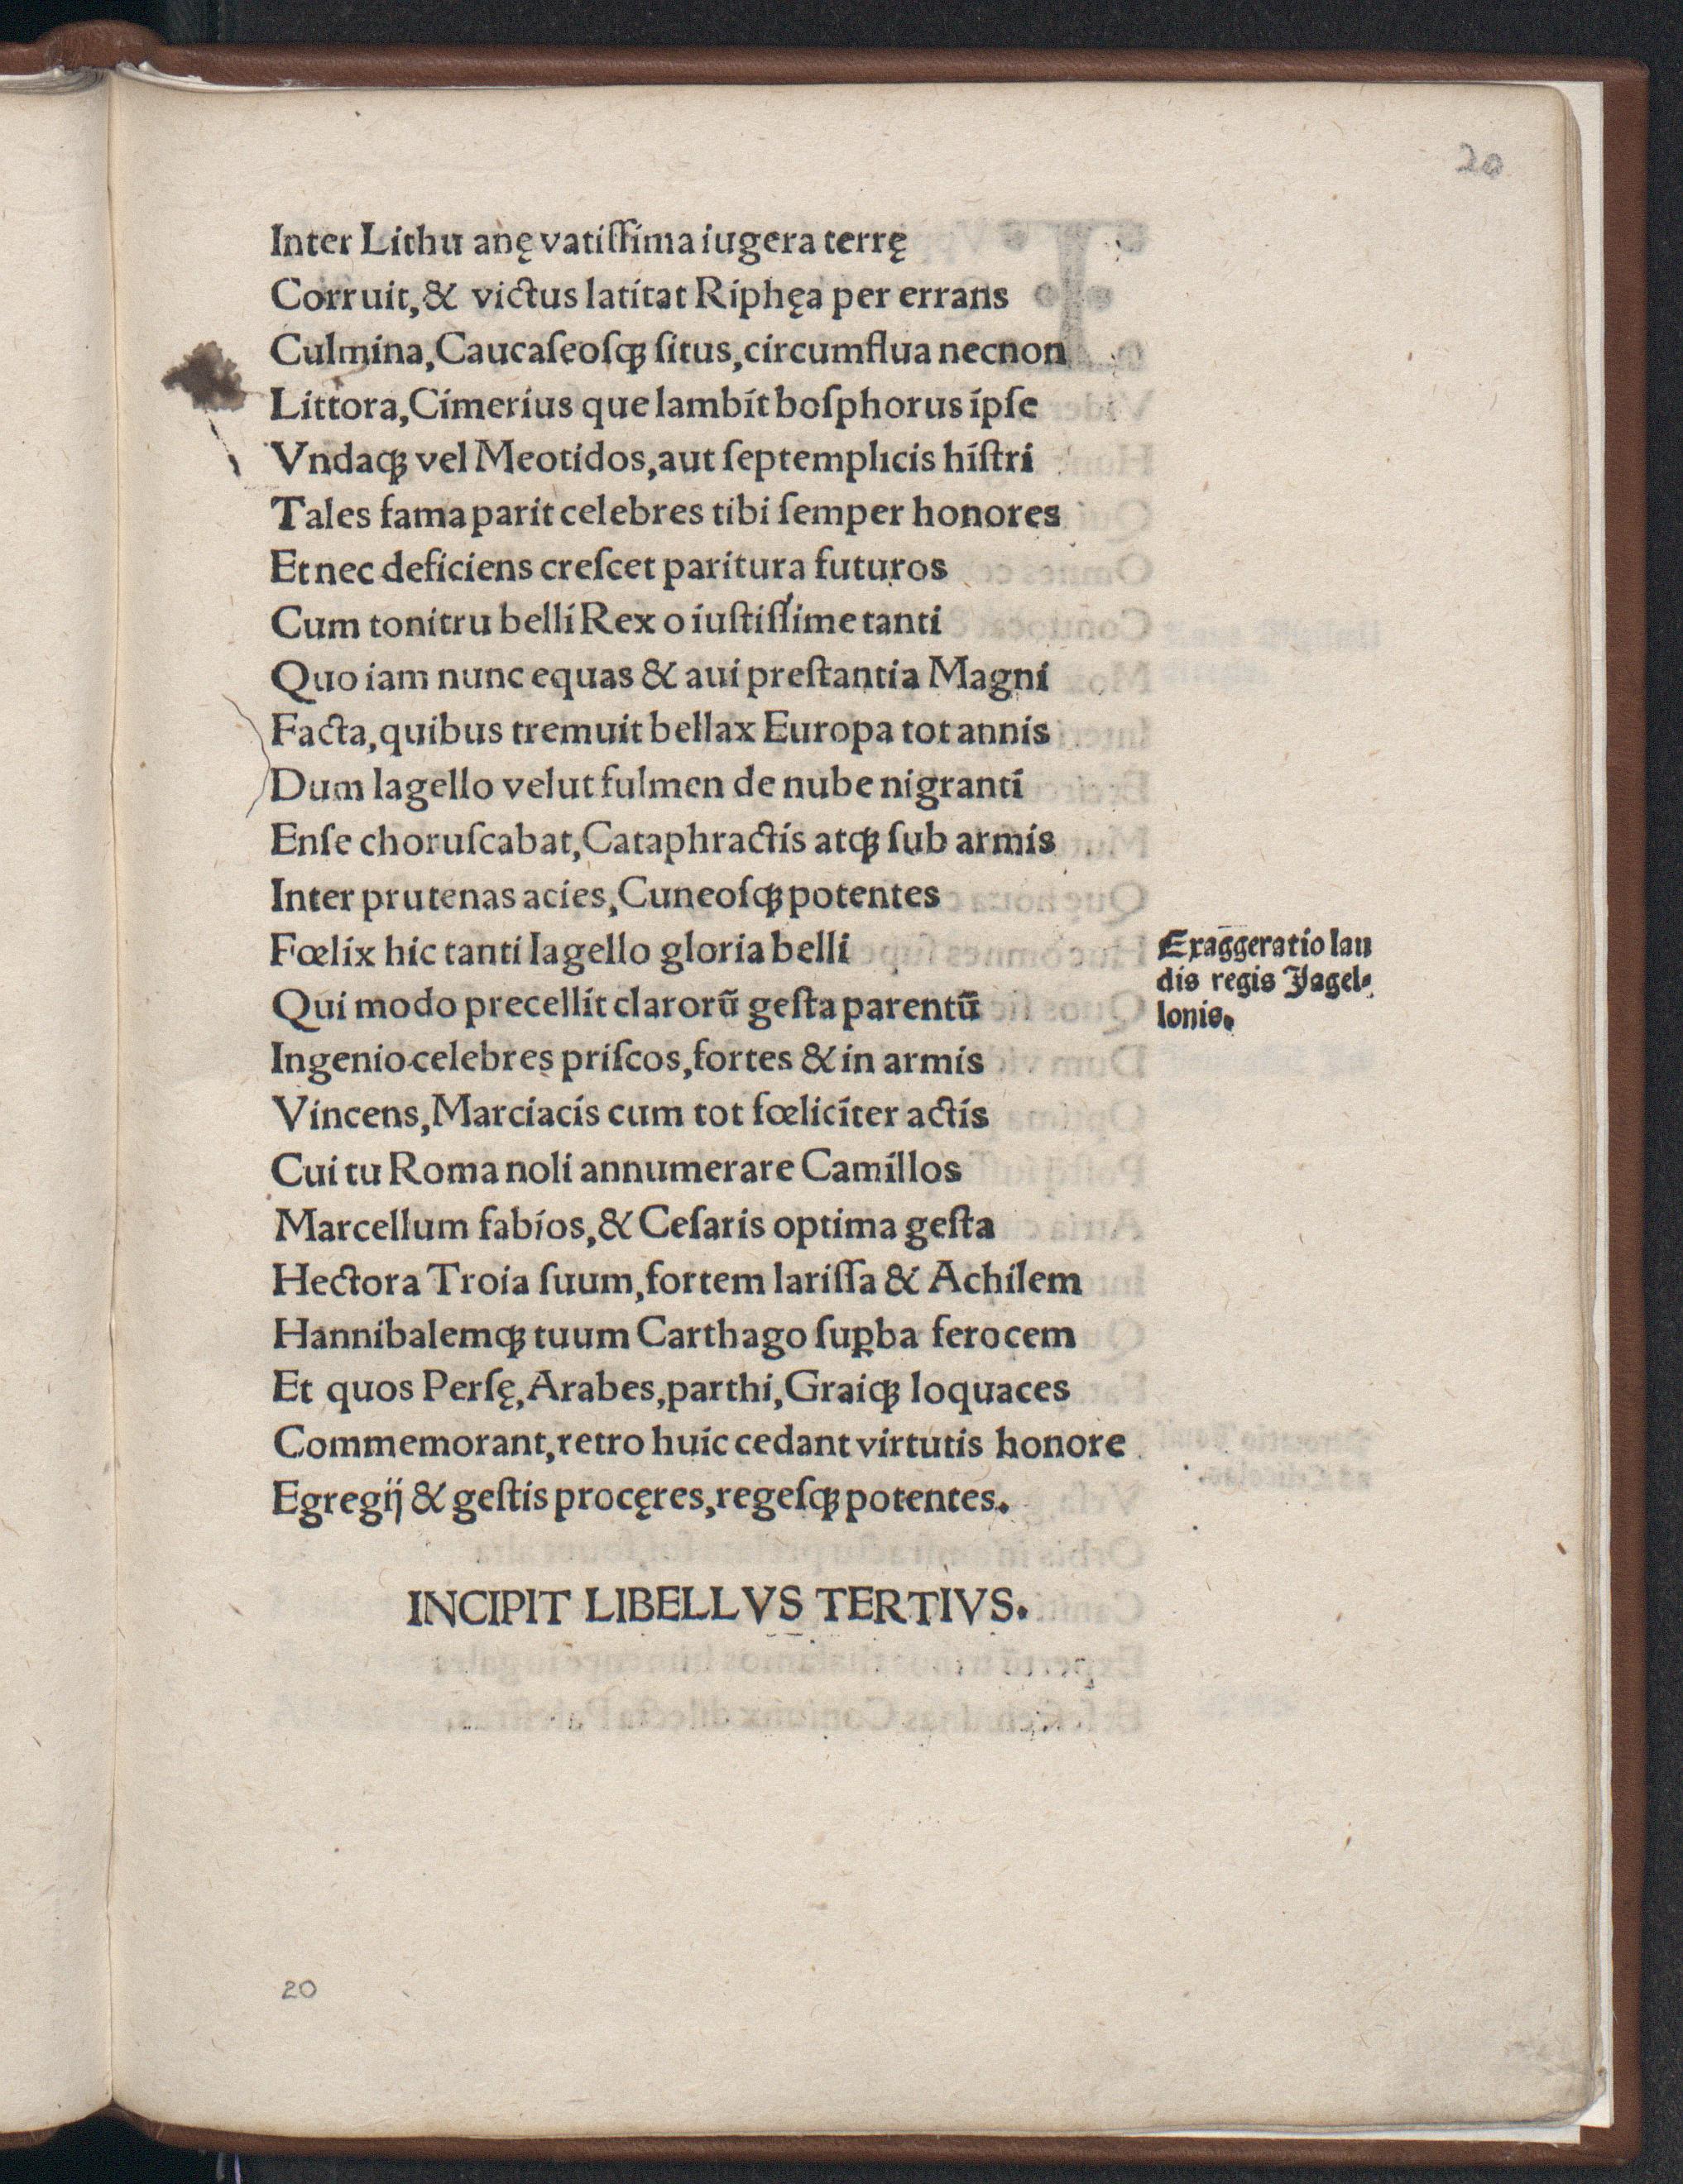 20
Inter Lithu anę vatiſſima iugera terrę
Corruit,& victus latitat Riphęa per errans
Culmina,Caucaſeoſqꝫ ſitus,circumflua necnon
Littora,Cimerius que lambit boſphorus ipſe
Vndaqꝫ vel Meotidos,aut ſeptemplicis hiſtri
Tales fama parit celebres tibi ſemper honores
Et nec deficiens creſcet paritura futuros
Cum tonitru belli Rex o iuſtiſſime tanti
Quo iam nunc equas & aui preſtantia Magni
Facta,quibus tremuit bellax Europa tot annis
Dum Iagello velut fulmen de nube nigranti
Enſe choruſcabat,Cataphractis atqꝫ ſub armis
Inter prutenas acies,Cuneoſqꝫ potentes
Fœlix hic tanti Iagello gloria belli
Qui modo precellit clarorũ geſta parentũ
Ingenio celebres priſcos,fortes & in armis
Vincens,Marciacis cum tot fœliciter actis
Cui tu Roma noli annumerare Camillos
Marcellum fabios,& Ceſaris optima geſta
Hectora Troia ſuum,fortem lariſſa & Achilem
Hannibalemqꝫ tuum Carthago ſuꝑba ferocem
Et quos Perſę,Arabes,parthi,Graiqꝫ loquaces
Commemorant,retro huic cedant virtutis honore
Egregij & geſtis procęres,regeſqꝫ potentes.
Exaggeratio lau
dis regis Jagel⸗
lonis.
INCIPIT LIBELLVS TERTIVS.
20